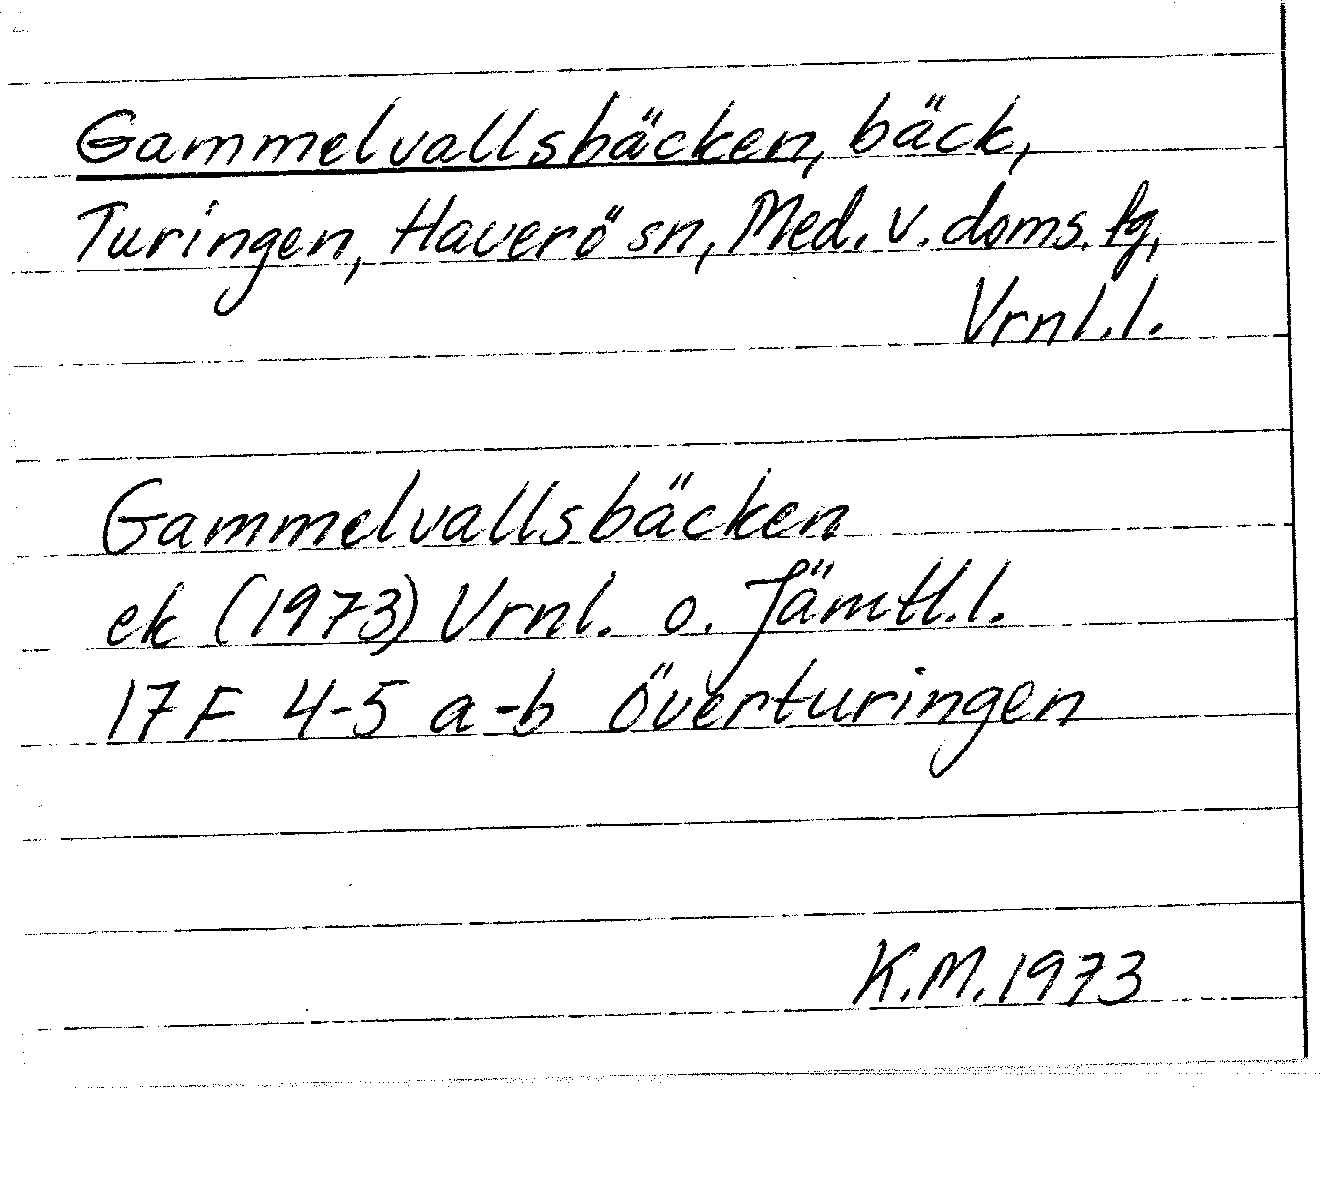 Gammelvallsbäcken, bäck,
Turingen, Haverö sn, Med. v. doms. fg,
Vrnl.l.
Gammelvallsbäcken
ek (1973) Vrnl. o. Jämtl.l.
17F 4-5 a-b Överturingen
K.M.1973